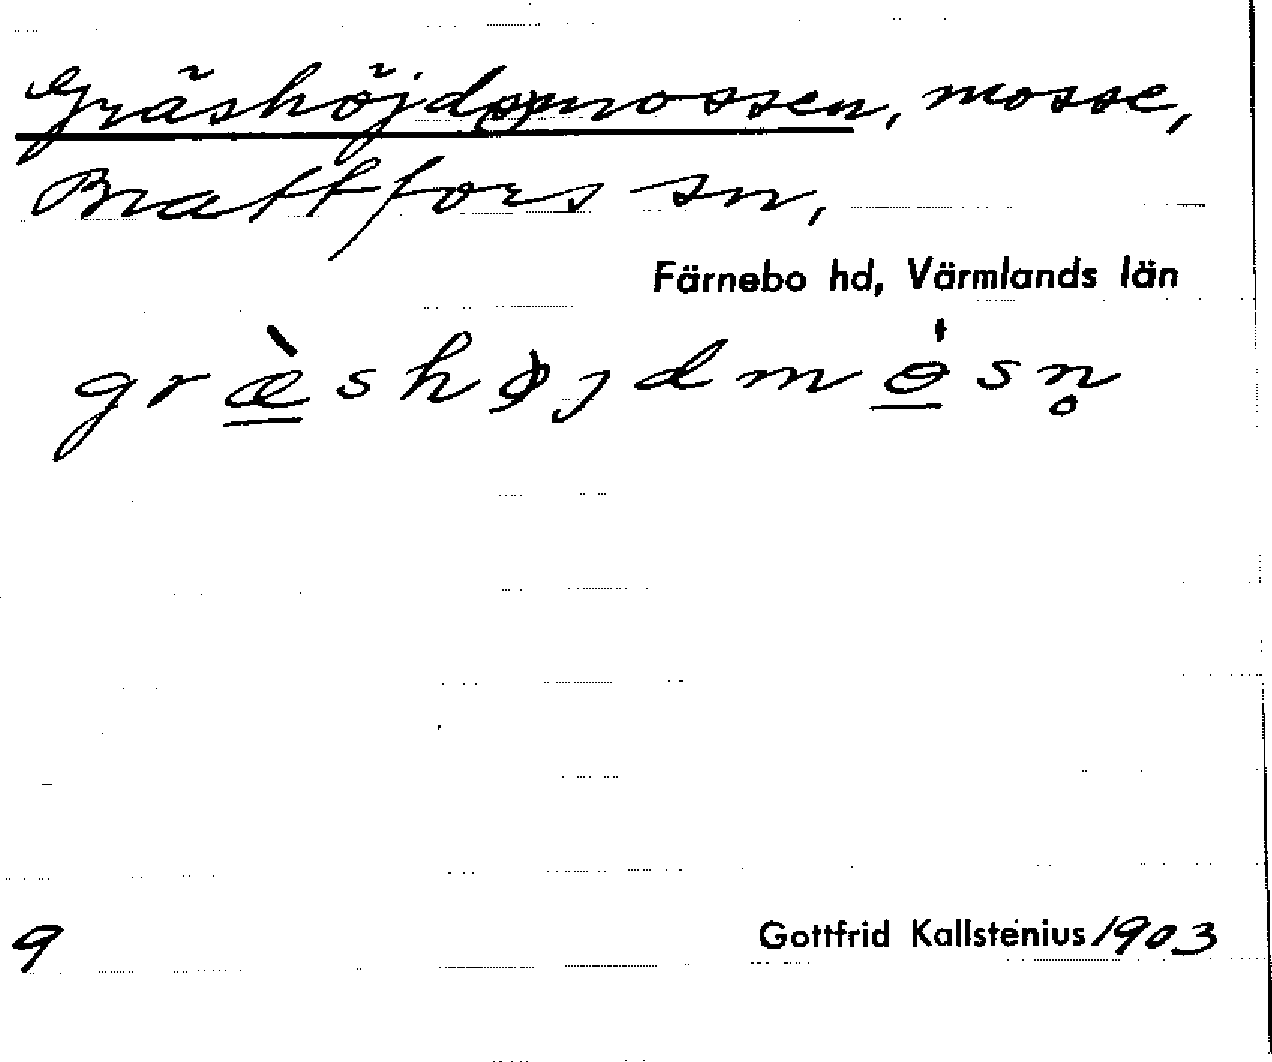 Gräshöjd(s)mossen, mosse,
Brattfors sn,
Färnebo hd, Värmlands län
græ̀shøjdmósn̥
9
Gottfrid Kallstenius 1903